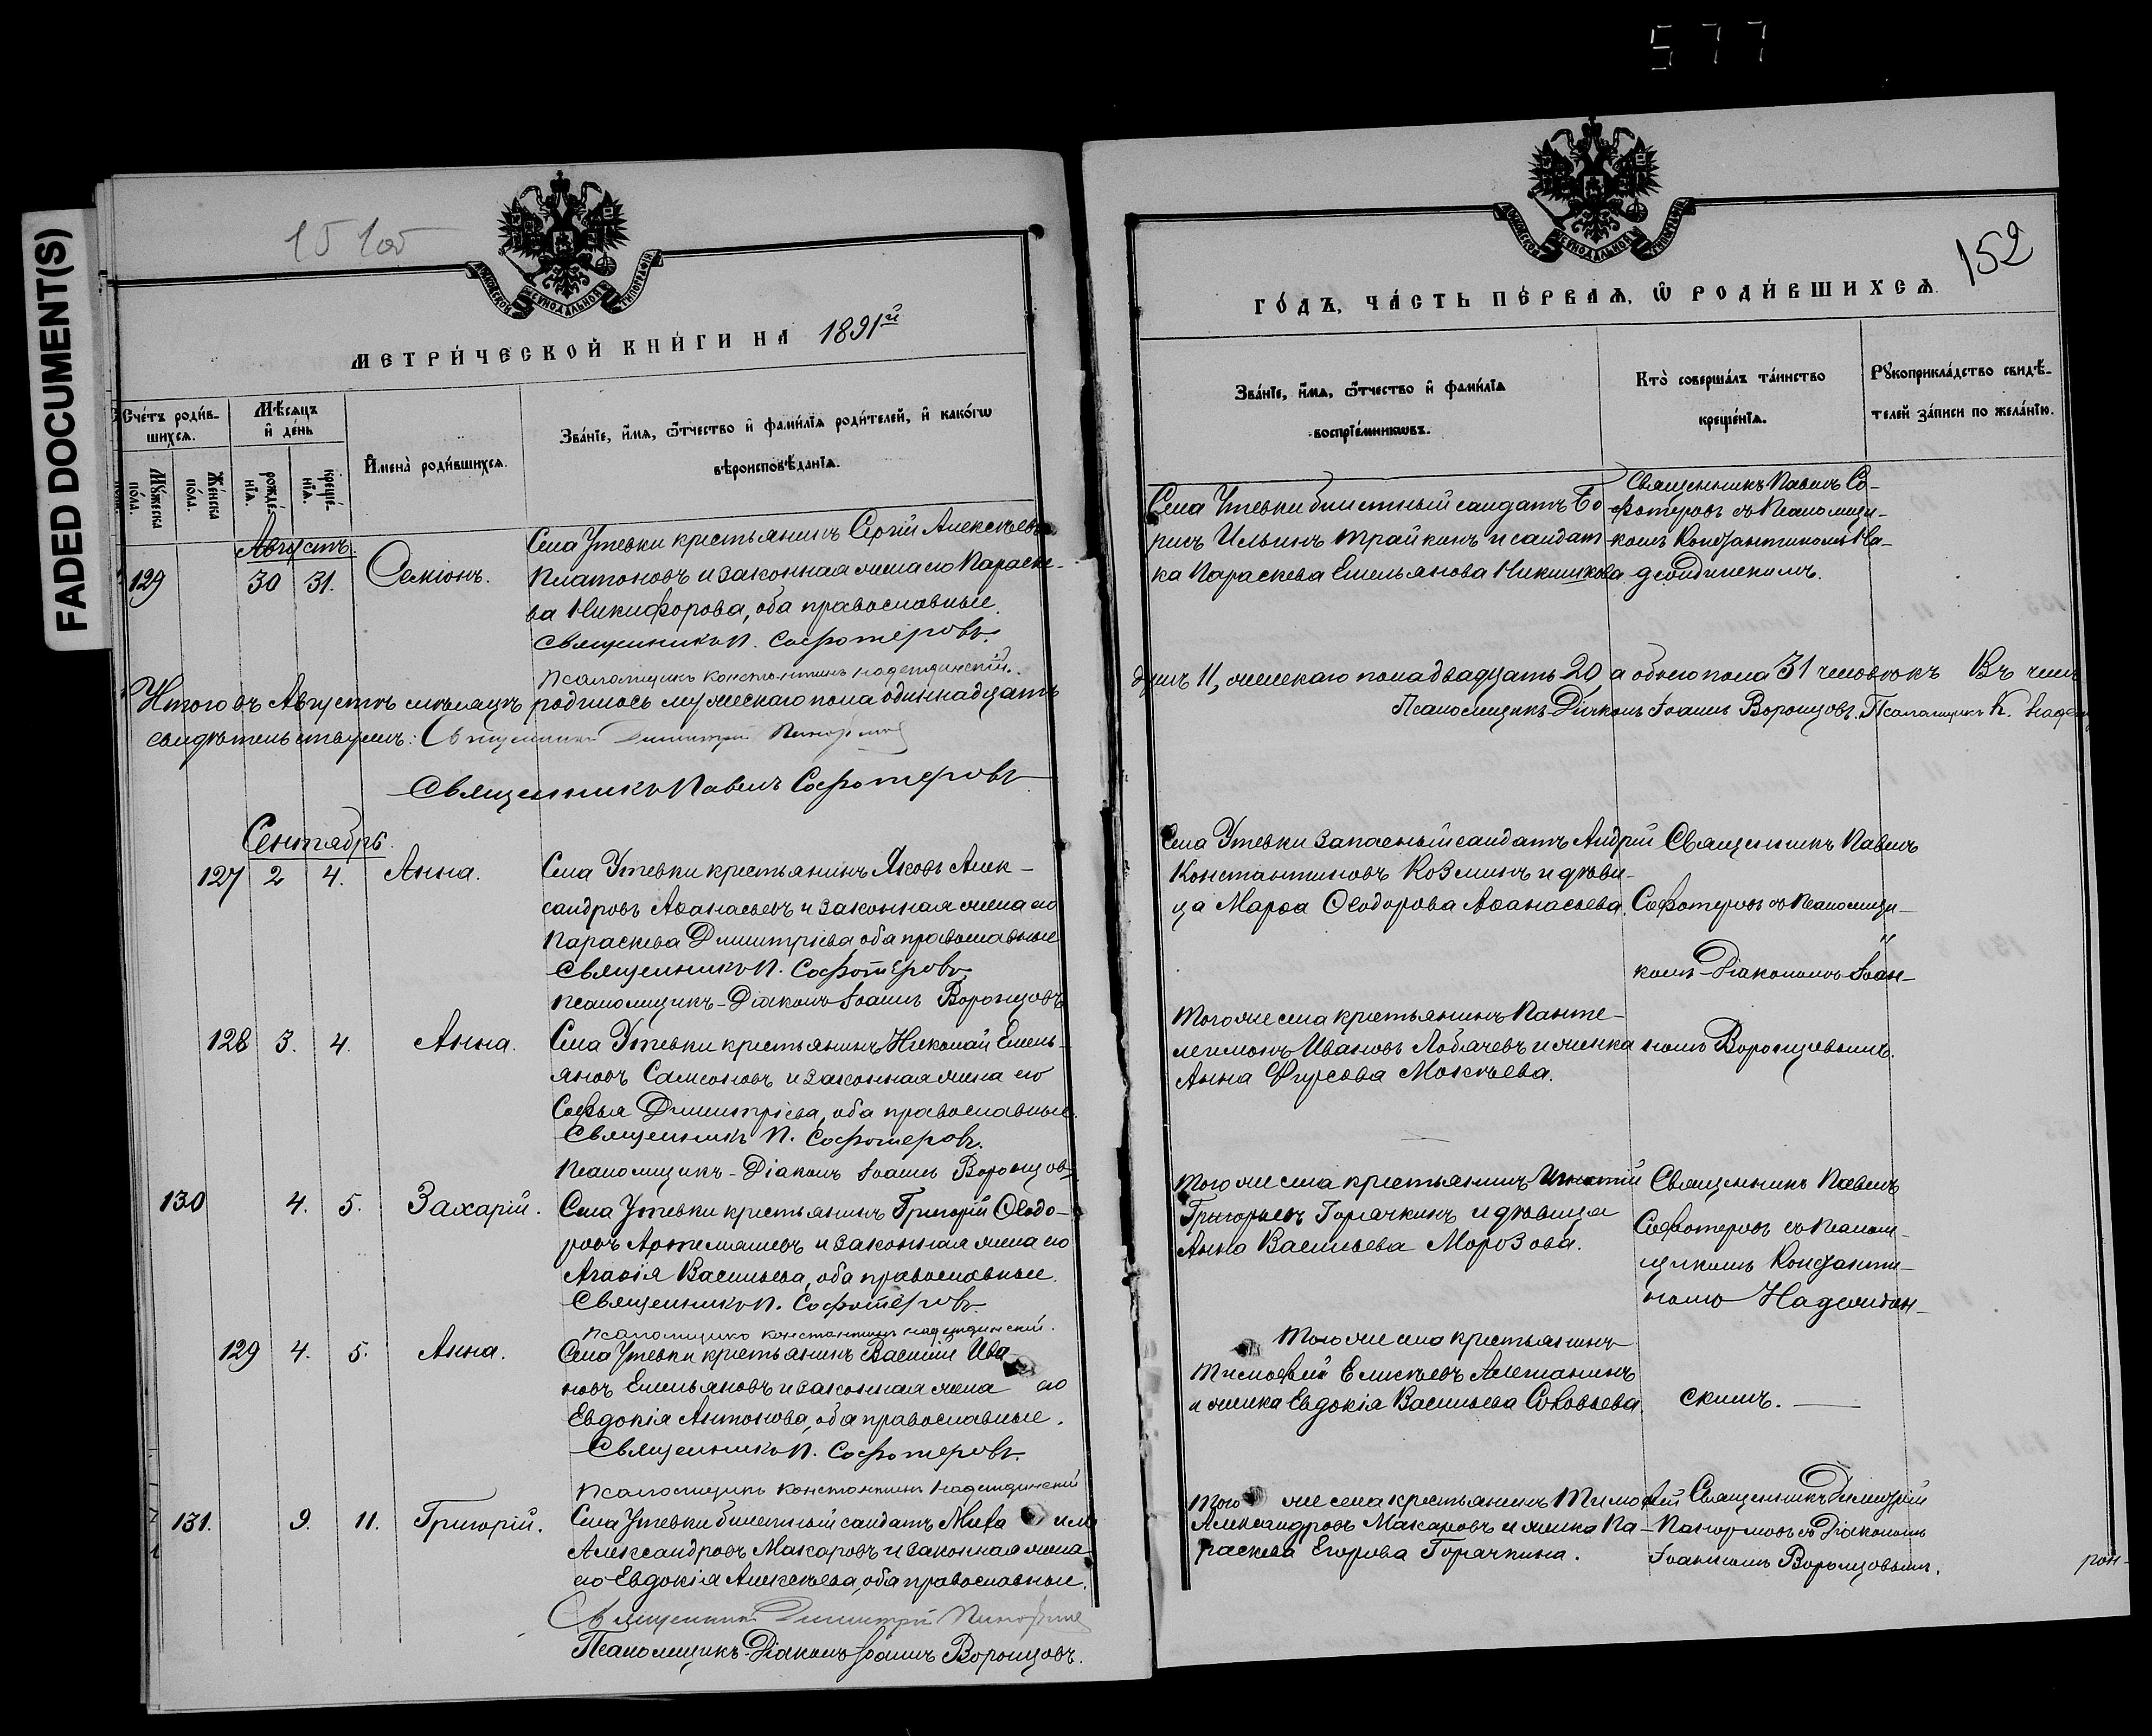 577
FADED DOCUMENT(S)
МОСКОВСКОЙ СѴНОДАЛЬНОЙ ТИПОГРАФІИ
МЕТРИ́ЧЕСКОЙ КНИ́ГИ НА 1891й
Сче́тъ роди́в-
шихсѧ.
Мꙋ́жеска по́ла.
Же́нска по́ла.
Мѣ́сѧцъ и҆ день
рожде́-
нїѧ.
креще́-
нїѧ.
И҆мена̀ роди́вшихсѧ.
Зва́нїе, и҆́мѧ, ѻ҆́тчество и҆ фами́лїѧ роди́телей, и҆ како́гѡ
вѣроисповѣ́данїѧ.
Августъ.
129 30 31. Семіонъ.
Села Утевки крестьянинъ Сергій Алексѣевъ
Платоновъ и законная жена его Параске-
ва Никифорова, оба православные.
Священникъ П. Софотеровъ.
Псаломщикъ Константинъ Надеждинскій.
Итого въ Августѣ мѣсяцѣ родилось мужескаго пола одиннадцать
свидѣтельствуемъ: Священникъ Димитрій
Священникъ Павелъ Софотеровъ
Сентябрь.
127 2 4. Анна.
Села Утевки крестьянинъ Яковъ Алек-
сандровъ Аѳанасьевъ и законная жена его
Параскева Димитріева оба православные
Священникъ П. Софотеровъ
Псаломщикъ-Діаконъ Іоаннъ Воронцовъ
128 3. 4. Анна.
Села Утевки крестьянинъ Николай Емель-
яновъ Самсоновъ и законная жена его
Софья Димитріева, оба православные.
Священникъ П. Софотеровъ.
Псаломщикъ-Діаконъ Іоаннъ Воронцовъ
130 4. 5. Захарій.
Села Утевки крестьянинъ Григорій Ѳедо-
ровъ Артемашевъ и законная жена его
Агаѳія Васильева, оба православные.
Священникъ П. Софотеровъ.
Псаломщикъ Константинъ Надеждинскій.
129 4. 5. Анна.
Села Утевки крестьянинъ Василій Ива
новъ Емельяновъ и законная жена его
Евдокія Антонова, оба православные.
Священникъ П. Софотеровъ.
Псаломщикъ Константинъ Надеждинскій
131. 9. 11. Григорій.
Села Утевки билетный солдатъ Миха илъ
Александровъ Макаровъ и законная жена
его Евдокія Алексѣева, оба православные.
Священникъ Димитрій
Псаломщикъ-Діаконъ Іоаннъ Воронцовъ.
МОСКОВСКОЙ СѴНОДАЛЬНОЙ ТИПОГРАФІИ
152
ГО́ДЪ, ЧА́СТЬ ПЕ́РВАѦ, Ѡ҆ РОДИ́ВШИХСѦ.
Зва́нїе, и҆́мѧ, ѻ҆́тчество и҆ фами́лїѧ
воспрїе́мникѡвъ.
Кто̀ соверша́лъ та́инство
креще́нїѧ.
Рꙋкоприкла́дство свидѣ́-
телей за́писи по жела́нїю.
Села Утевки билетный солдатъ Бо
рисъ Ильинъ Трайкинъ и солдат
ка Параскева Емельянова Никишкова
Священникъ Павелъ Со-
фотеровъ съ Псаломщи-
комъ Константиномъ На-
деждинскимъ.
душъ 11, женскаго пола двадцать 20, а обоего пола 31 человѣкъ Въ чемъ
Псаломщикъ-Діаконъ Іоаннъ Воронцовъ. Псаломщикъ К. Надеж
Села Утевки запасный солдатъ Андрей
Константиновъ Козминъ и дѣви-
ца Марѳа Ѳеодорова Аѳанасьева.
Священникъ Павелъ
Софотеровъ съ Псаломщи-
комъ-Діакономъ Іоан-
номъ Воронцовымъ.
Тогоже села крестьянинъ Панте-
леимонъ Ивановъ Лобачевъ и женка
Анна Фирсова Мокѣева.
Того же села крестьянинъ Игнатій
Григорьевъ Горячкинъ и дѣвица
Анна Васильева Морозова.
Священникъ Павелъ
Софотеровъ съ Псалом-
щикомъ Константи-
номъ Надеждин-
скимъ.
Того же села крестьянинъ
Тимоѳей Елисѣевъ Алешанинъ
и женка Евдокія Васильева Соловьева.
Того же села крестьянинъ Тимоѳей
Александровъ Макаровъ и женка Па-
раскева Егорова Горячкина.
Священникъ Димитрій
съ Діакономъ
Іоанномъ Воронцовымъ.